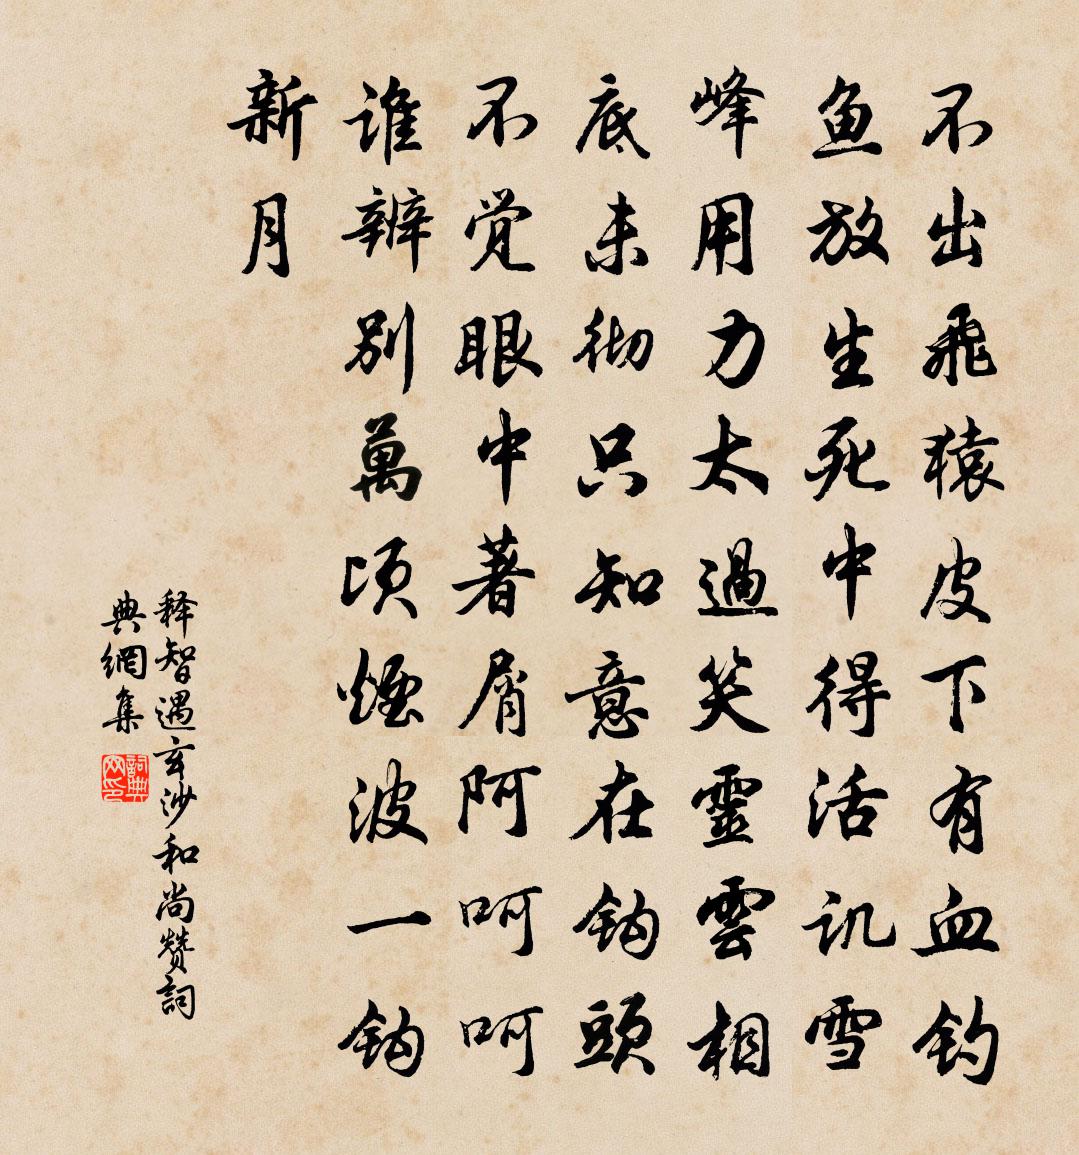 不出飛猿皮下有血钓
鱼放生死中得活讥雪
峰用力太過笑靈雲相
底未彻只知意在鈎頭
不觉眼中著屑阿呵呵
谁辨别萬顷煙波一鈎
新月
释智遇玄沙和尚赞詞
典網集
詞典网印